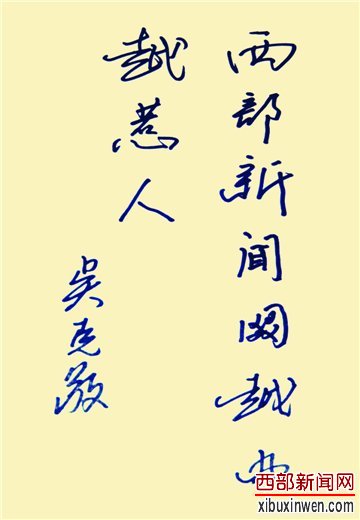 西部新闻网越办
越惹人
吴克敬
西部新闻网
xibuxinwen.com